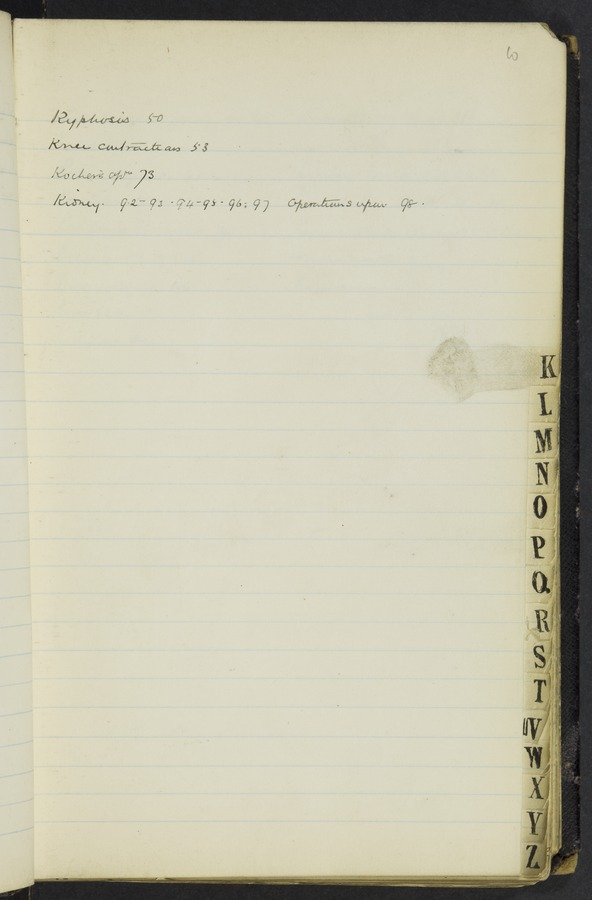 10
Kyphosis 50
Knee contractions 53
Kocher's opn 73
Kidney. 92-93.94-95.96:97 Operations upon 98.
K
L
M
N
O
P
Q
R
S
T
UV
W
X
Y
Z